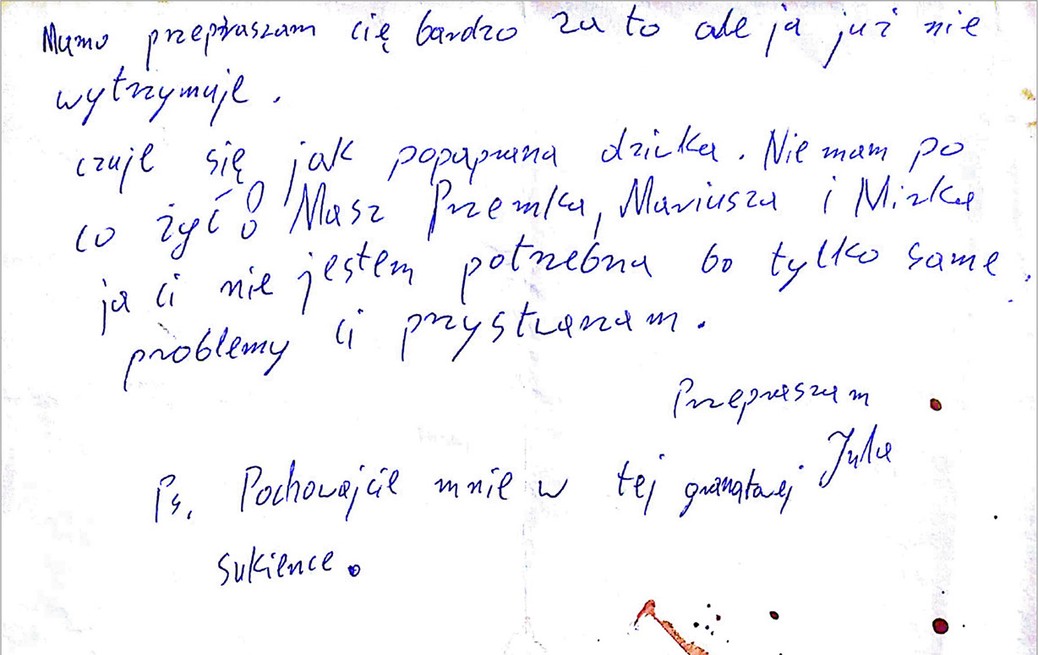 Mamo przepraszam cię bardzo za to ale ja już nie
wytrzymuję.
czuję się jak popaprana dzika. Nie mam po
co żyć. Masz Przemka, Mariusza i Mirka
ja ci nie jestem potrzebna bo tylko same
problemy ci przysparzam.
Przepraszam
Julia
Ps. Pochowajcie mnie w tej granatowej
sukience.